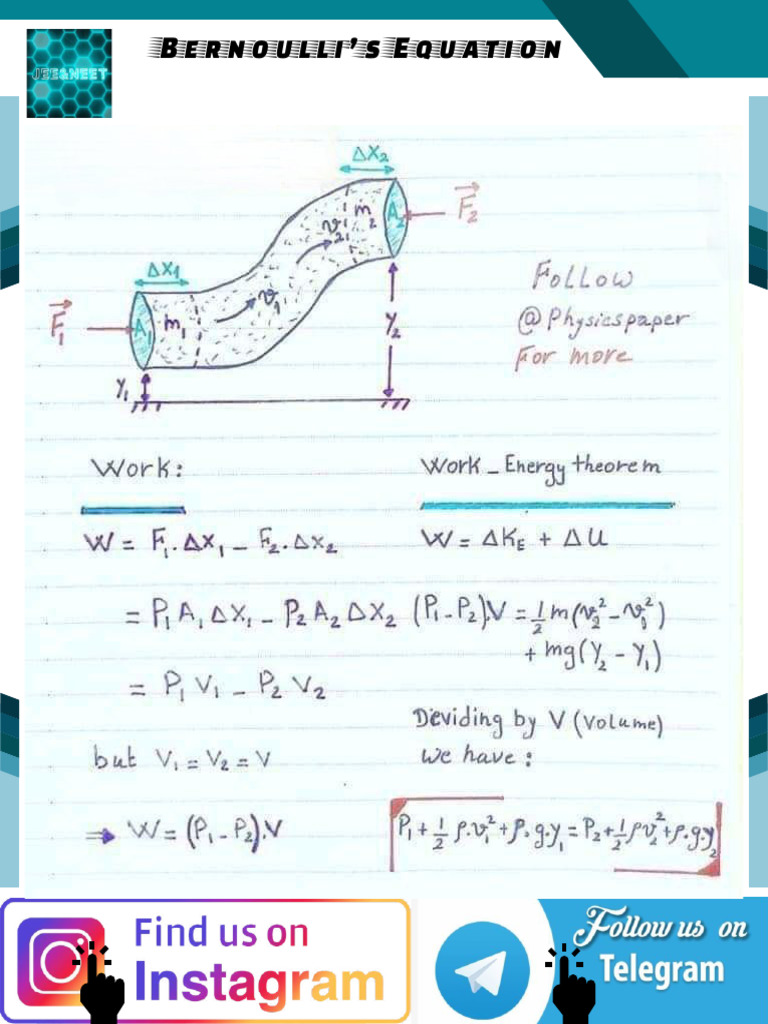 BERNOULLI'S EQUATION
JEE&NEET
ΔX₂
m₂
A₂
F₂
v₂
ΔX₁
F₁
A₁
m₁
v₁
Y₂
Y₁
Follow
@Physicspaper
For more
Work:
W = F₁.ΔX₁ _ F₂.ΔX₂
= P₁ A₁ ΔX₁ _ P₂ A₂ ΔX₂
= P₁ V₁ _ P₂ V₂
but V₁ = V₂ = V
⇒ W = (P₁ _ P₂).V
Work _ Energy theorem
W = ΔK_E + ΔU
(P₁ _ P₂).V = 1/2 m(v₂² _ v₁²)
+ mg(Y₂ _ Y₁)
Deviding by V (Volume)
we have:
P₁ + 1/2 ρ.v₁² + ρ.g.y₁ = P₂ + 1/2 ρv₂² + ρ.g.y₂
Find us on
Instagram
Follow us on
Telegram